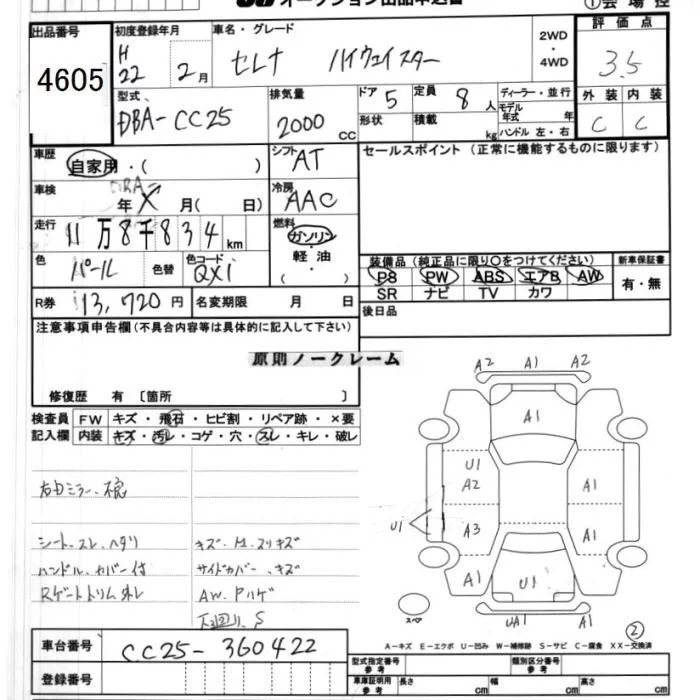 オークション出品申込書
①会場控
出品番号 4605
初度登録年月 H22 2月
車名・グレード セレナ ハイウェイスター
2WD・4WD
評価点 3.5
外装 C 内装 C
型式 DBA-CC25
排気量 2000 CC
ドア 5 形状
定員 8人 積載 kg
ディーラー・並行
モデル年式 年
ハンドル 左・右
車歴 自家用・( )
シフト AT
セールスポイント (正常に機能するものに限ります)
車検 年 X 月( 日)
冷房 AAC
走行 11万8千834km
燃料 ガソリン・軽油・( )
色 パール 色替 色コード QX1
装備品 (純正品に限り○をつけてください)
PS PW ABS エアB AW
SR ナビ TV カワ
新車保証書 有・無
R券 13,720円
名変期限 月 日
後日品
注意事項申告欄(不具合内容等は具体的に記入して下さい)
原則ノークレーム
修復歴 有 〔箇所 〕
検査員記入欄
FW キズ・飛石・ヒビ割・リペア跡・×要
内装 キズ・汚レ・コゲ・穴・スレ・キレ・破レ
右ミラー不良
シートスレ、ヘタリ
キズ・M.スリキズ
ハンドルカバー付
サイドカバー、キズ
Rゲートトリム外レ
AW.Pハゲ
下廻り、S
A2 A1 A2
A1
U1
A2 A1
U1 A3 A1
A1 U1 A1
スペア
UA1
②
A-キズ E-エクボ U-凹み W-補修跡 S-サビ C-腐食 XX-交換済
車台番号 CC25-360422
登録番号
型式指定番号 参考
類別区分番号 参考
車庫証明用 参考 長さ cm 幅 cm 高さ cm